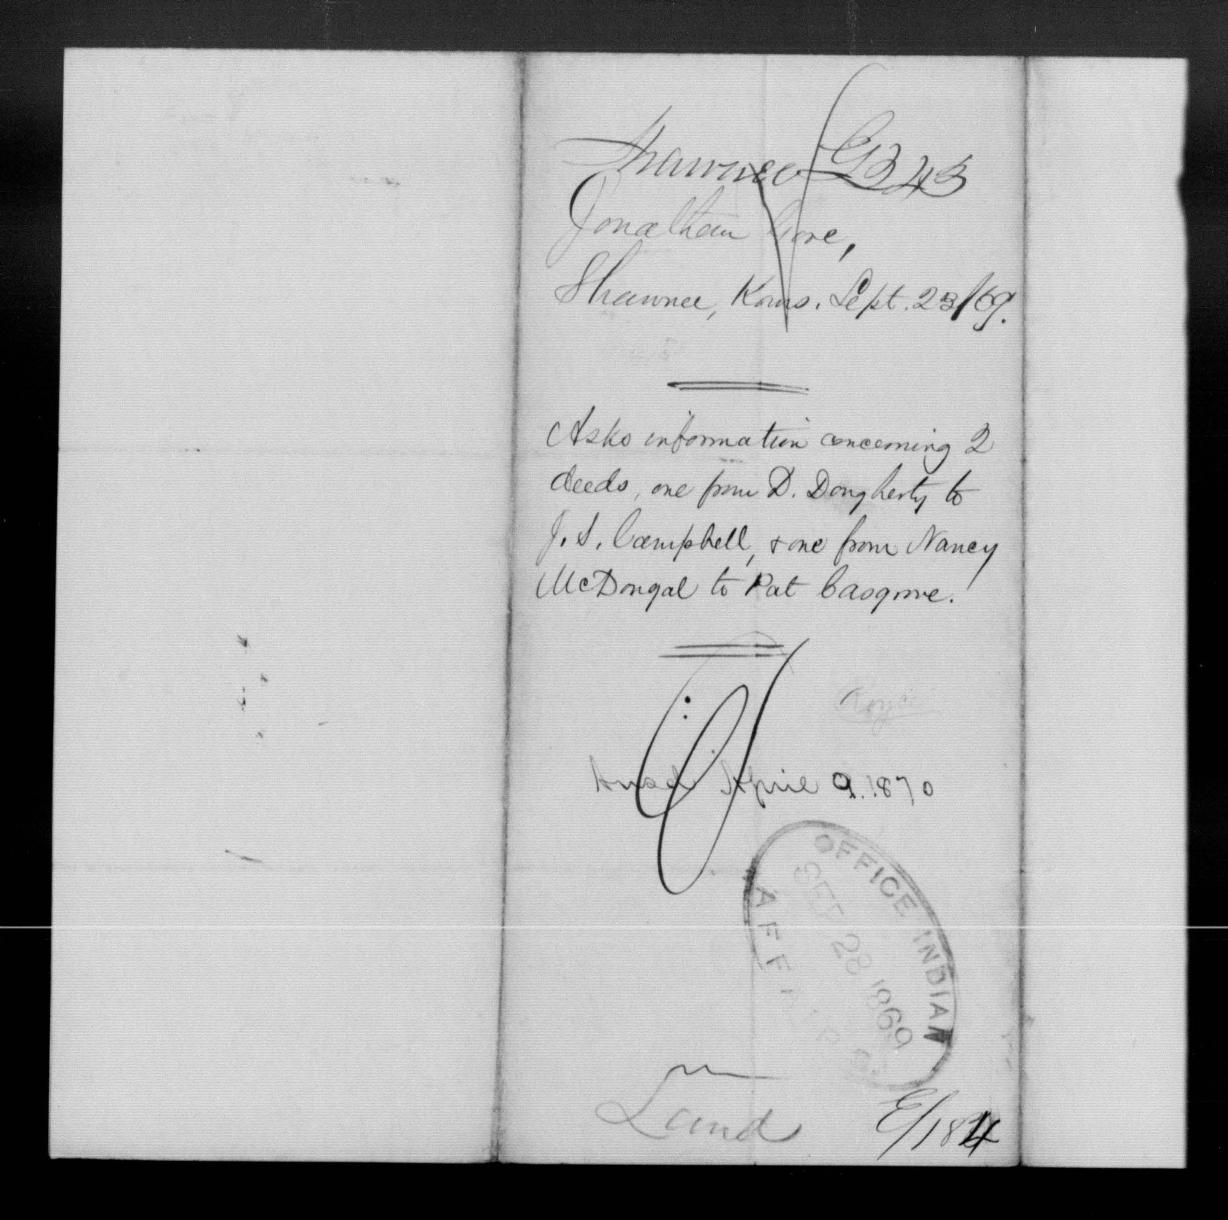 Shawnee G343
Jonathan Gore,
Shawnee, Kans. Sept. 23/69.
Asks information concerning 2
deeds, one from D. Dougherty to
J. S. Campbell, & one from Nancy
McDougal to Pat Casgrove.
April 9. 1870
OFFICE INDIAN
SEP 28 1869
AFFAIRS
Land